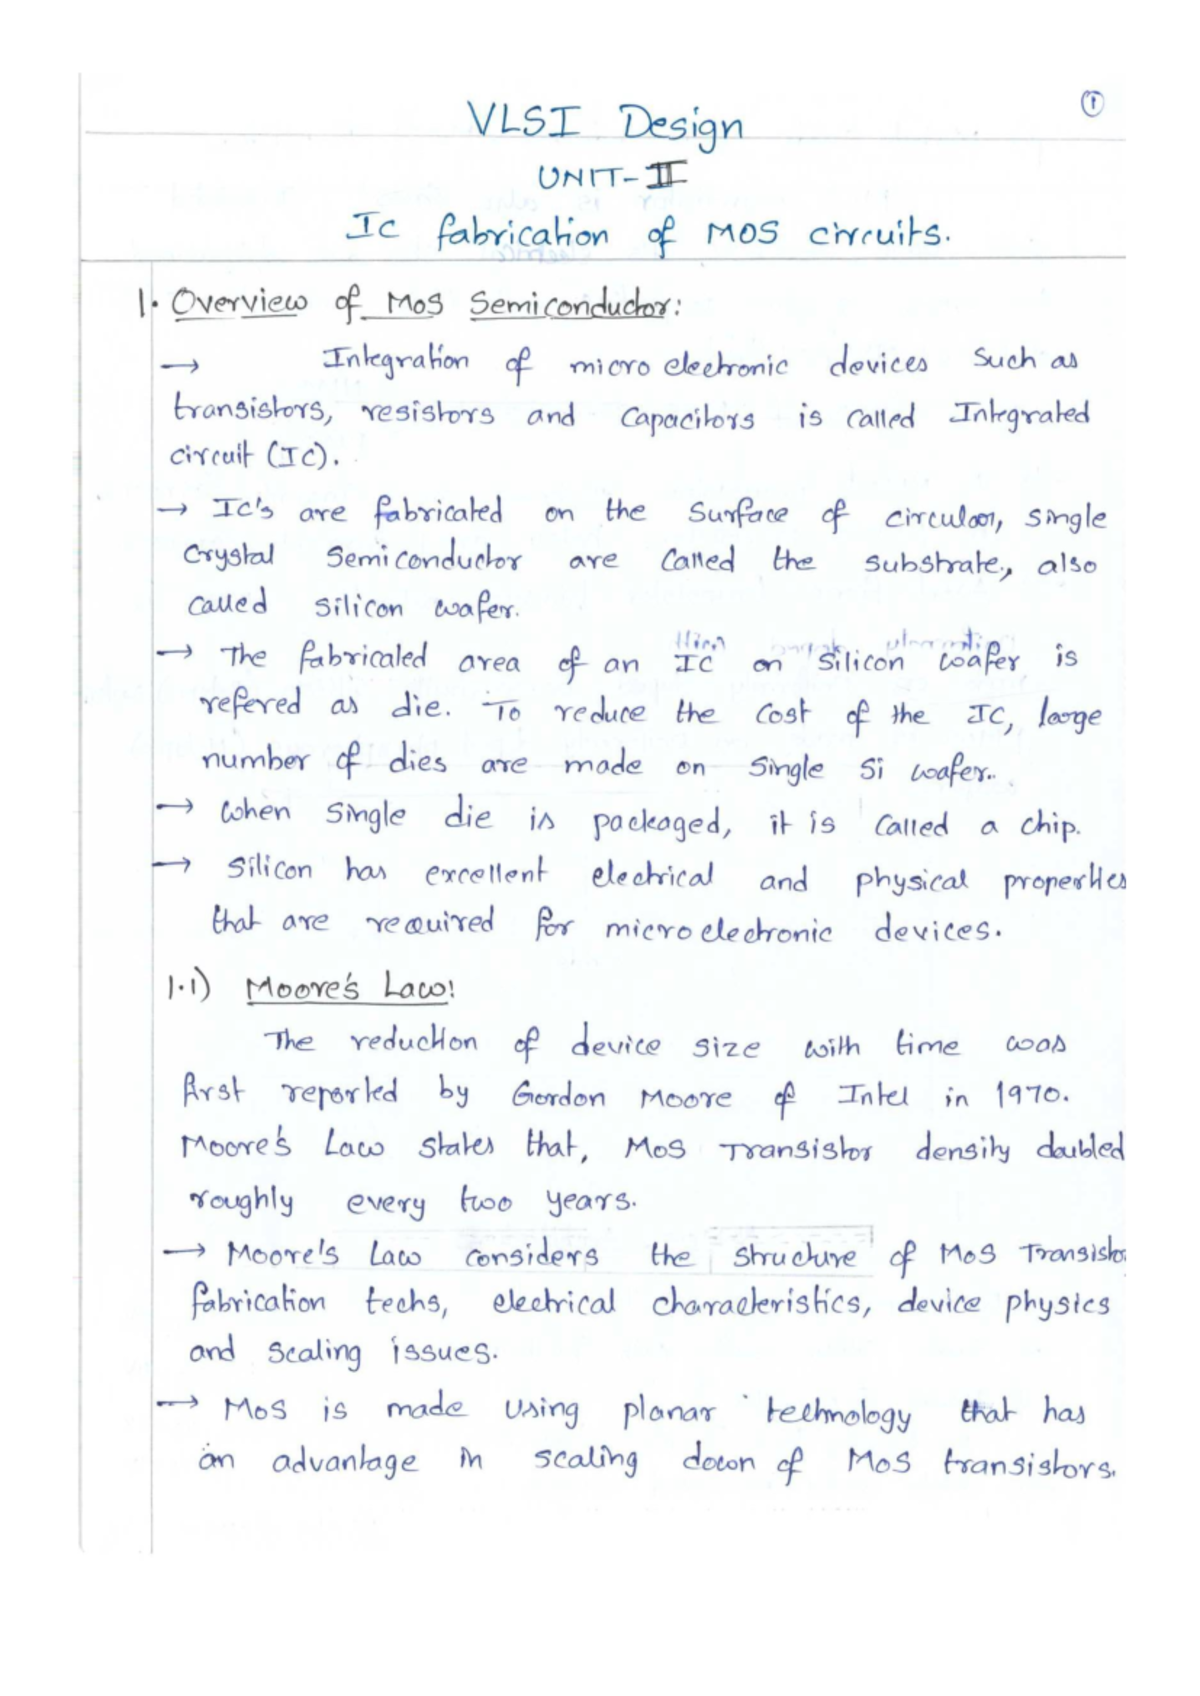 ①
VLSI Design
UNIT-II
Ic fabrication of MOS circuits.
1. Overview of MOS Semiconductor:
→ Integration of micro electronic devices such as
transistors, resistors and capacitors is called Integrated
circuit (IC).
→ IC's are fabricated on the surface of circular, single
crystal semiconductor are called the substrate, also
called silicon wafer.
→ The fabricated area of an IC on silicon wafer is
refered as die. To reduce the cost of the IC, large
number of dies are made on single Si wafer.
→ When single die is packaged, it is called a chip.
→ Silicon has excellent electrical and physical properties
that are required for microelectronic devices.
1.1) Moore's Law:
The reduction of device size with time was
first reported by Gordon Moore of Intel in 1970.
Moore's Law states that, MOS Transistor density doubled
roughly every two years.
→ Moore's Law considers the structure of MOS Transisto
fabrication techs, electrical characteristics, device physics
and scaling issues.
→ MOS is made using planar technology that has
an advantage in scaling down of MOS transistors.